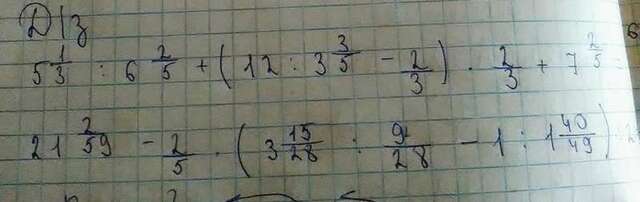 Д/з
5 1/3 : 6 2/5 + (12 : 3 3/5 - 2/3) · 2/3 + 7 2/5
21 2/59 - 2/5 · (3 15/28 : 9/28 - 1 : 1 40/49)